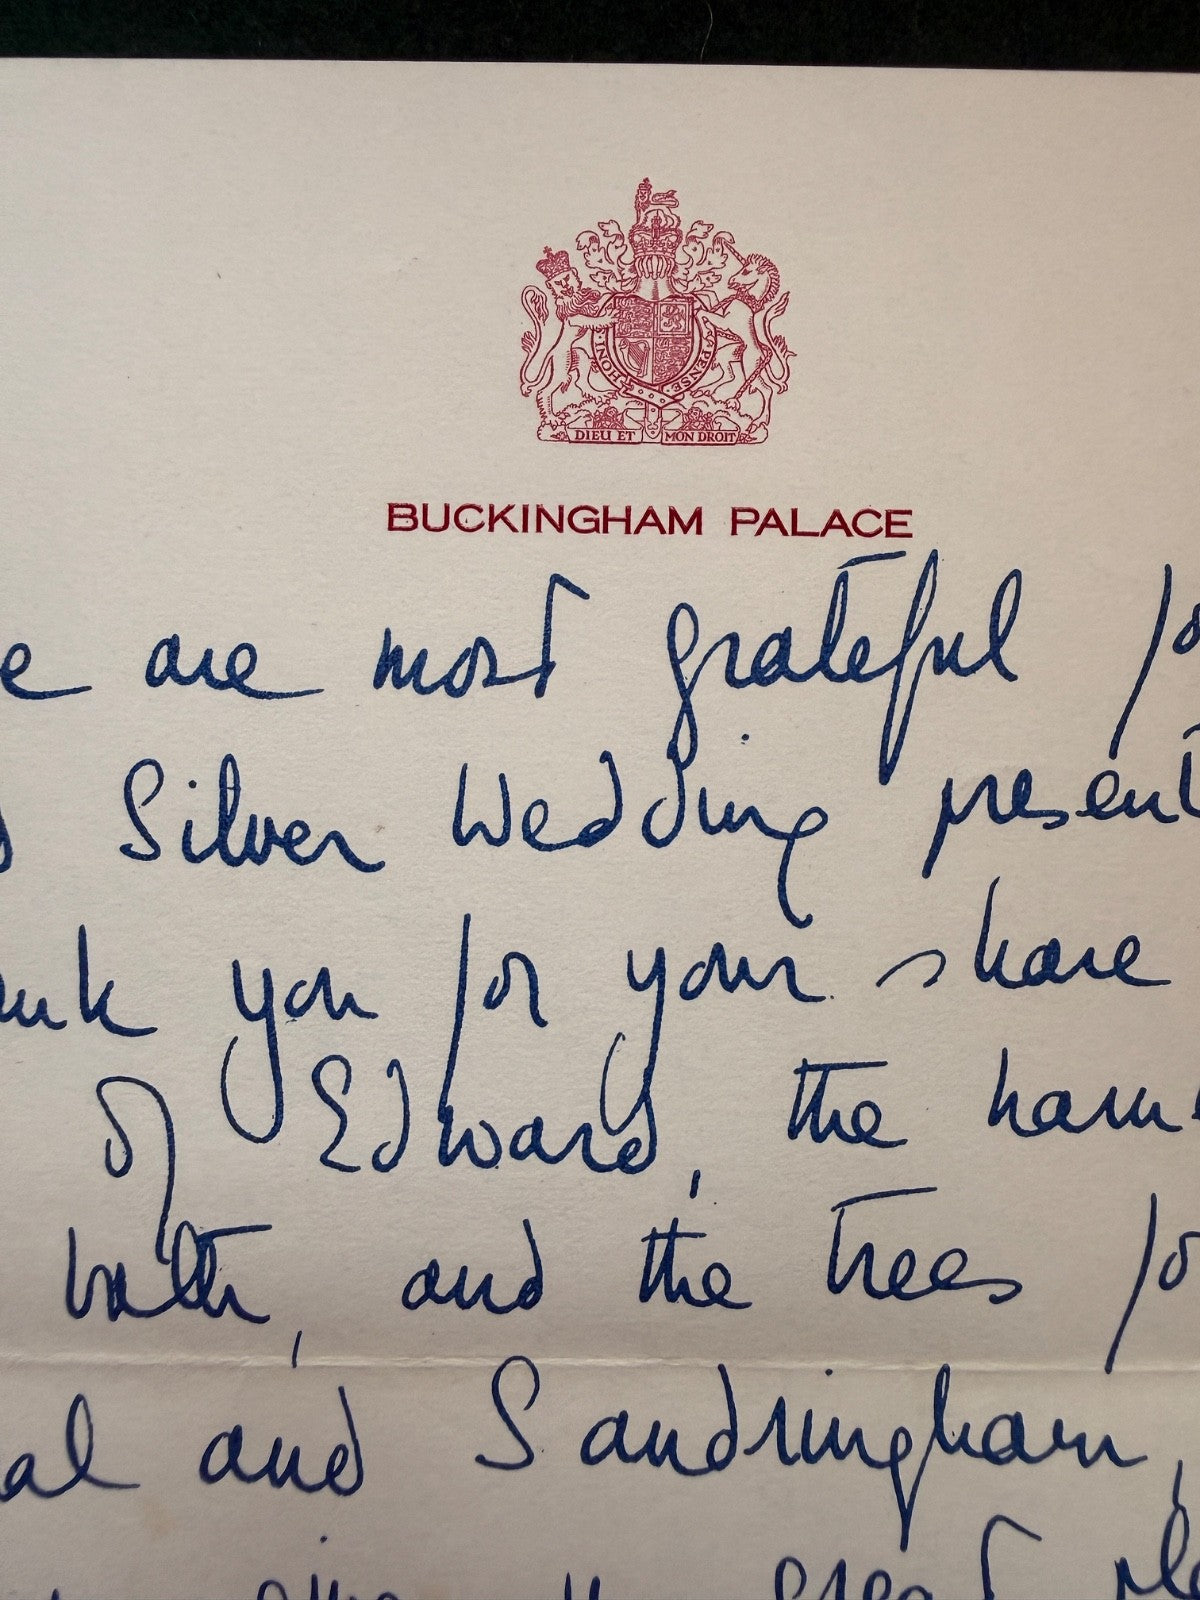 HONI
PENSE
DIEU ET MON DROIT
BUCKINGHAM PALACE
e are most grateful fo
Silver Wedding present
nk you for your share
of Edward, the ham
bath, and the trees fo
al and Sandringham,
give us great ple